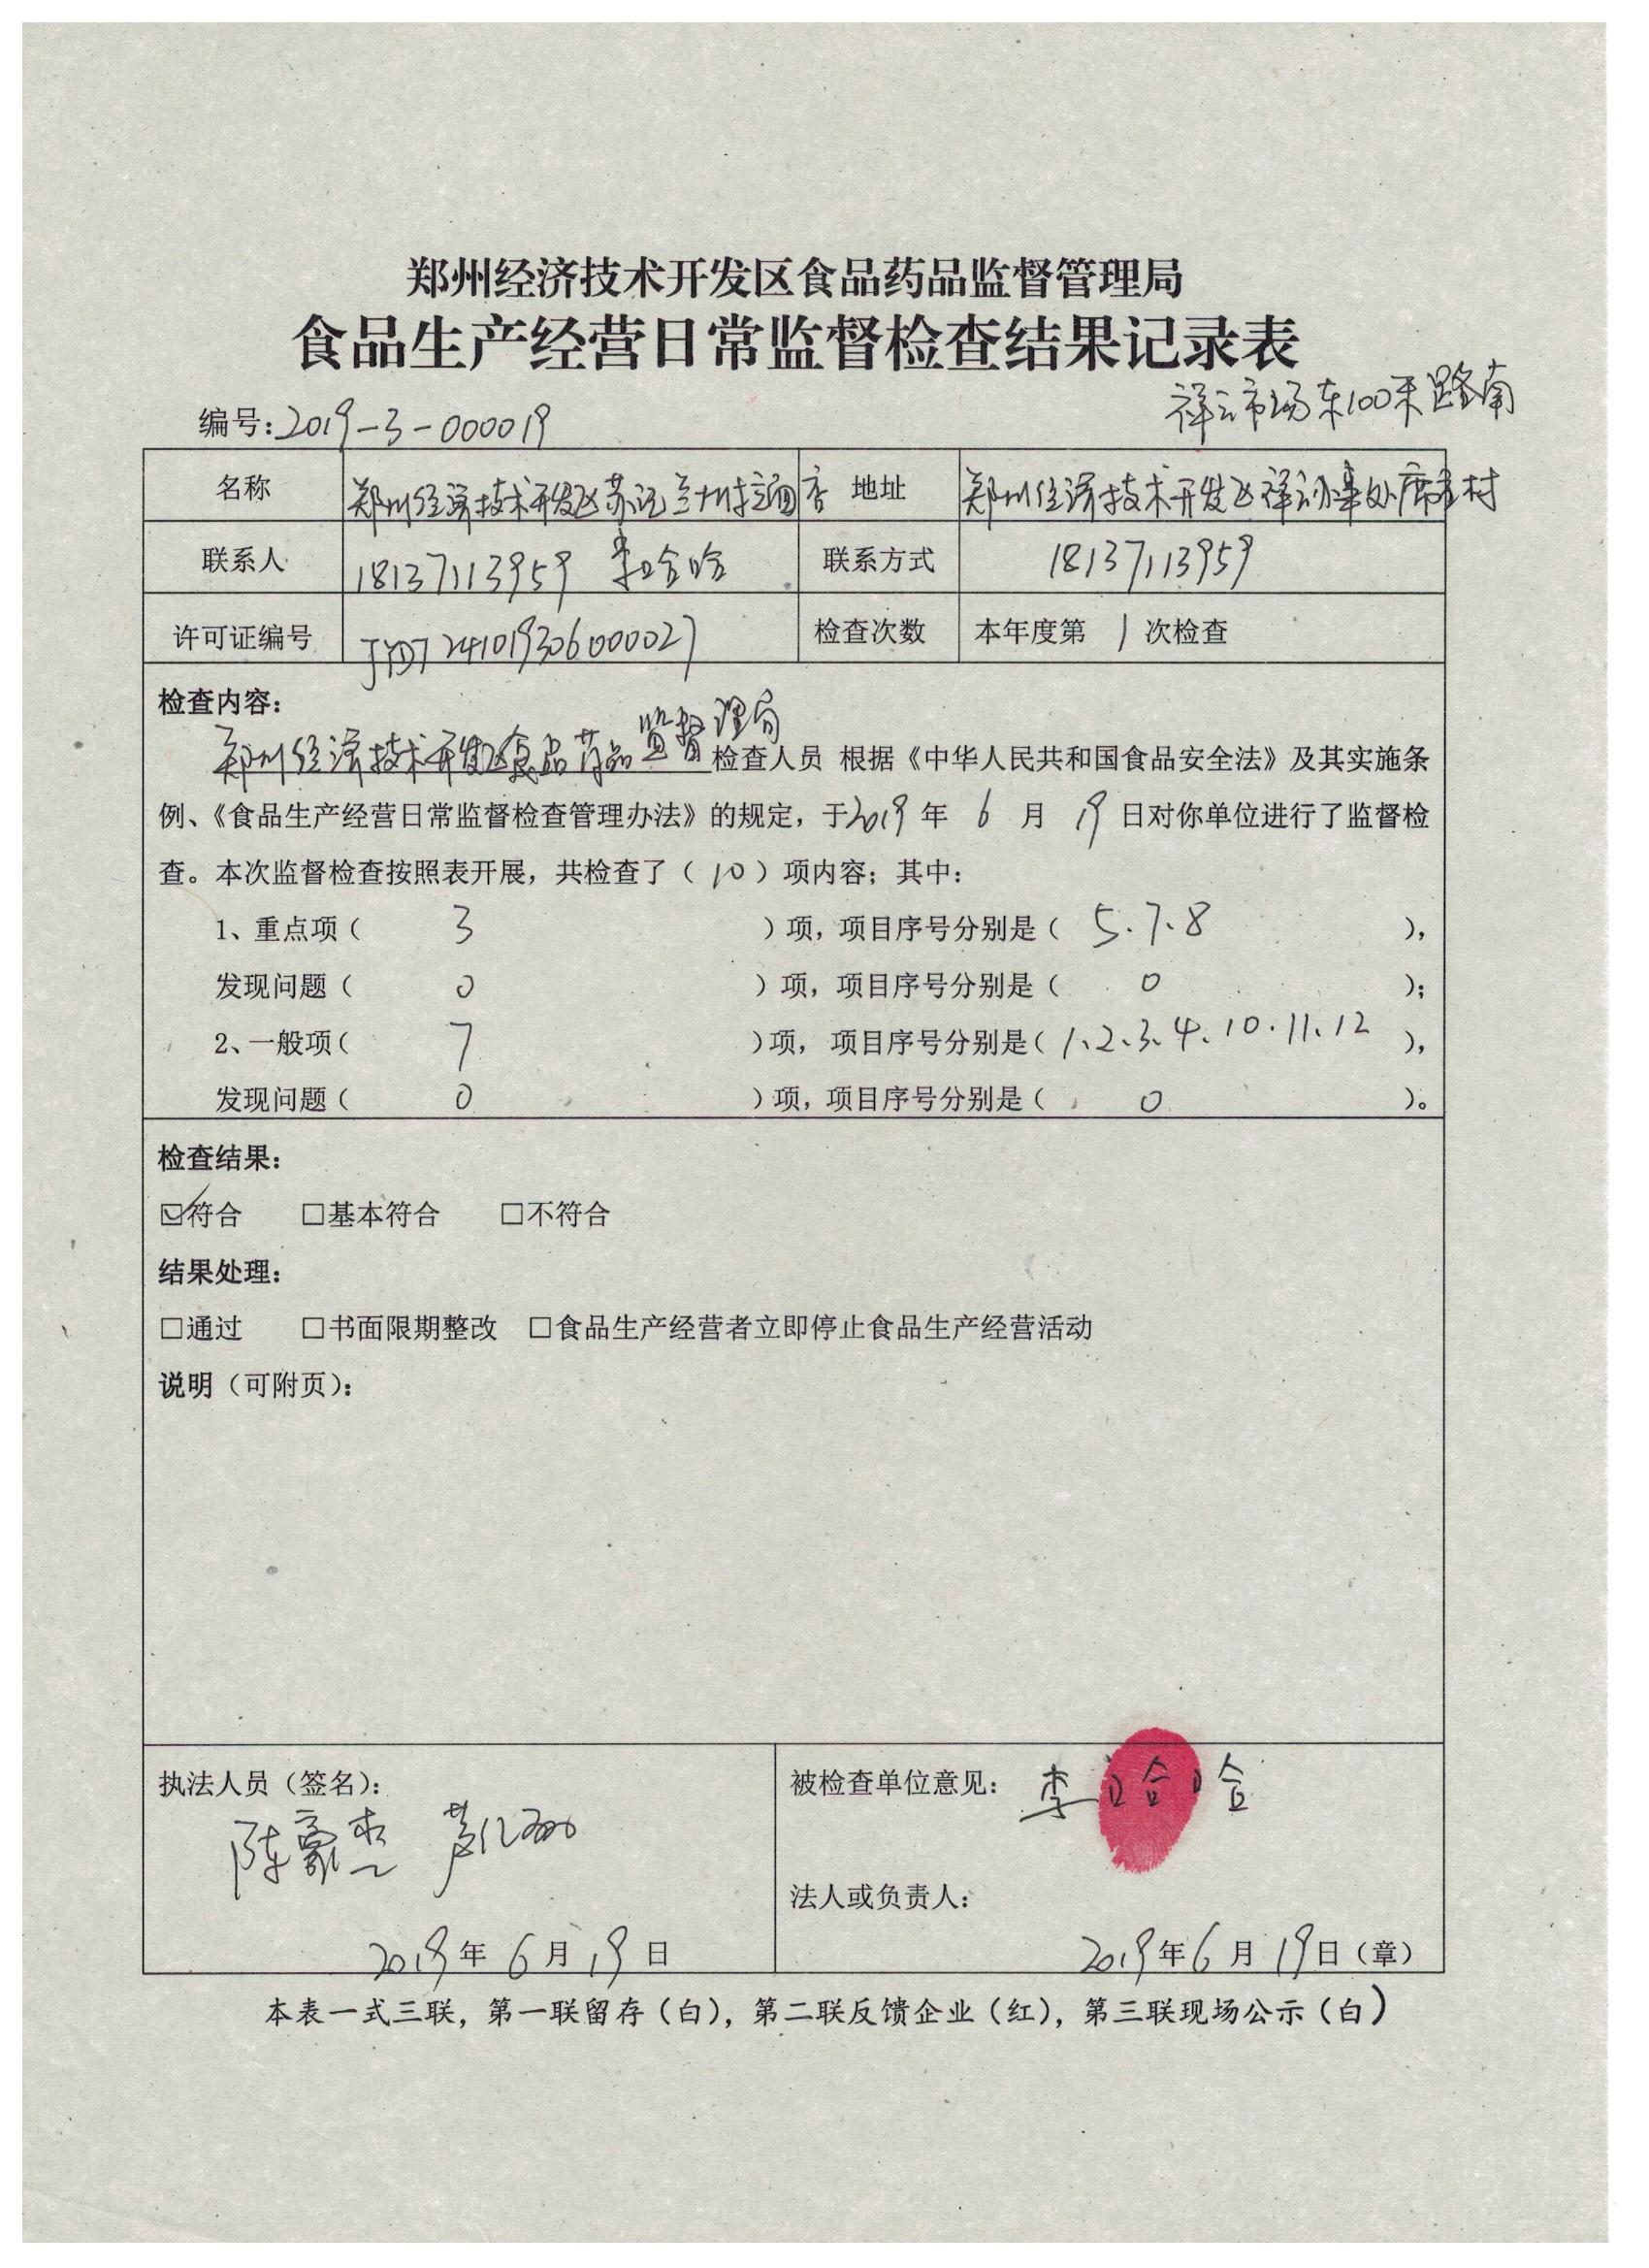 郑州经济技术开发区食品药品监督管理局
食品生产经营日常监督检查结果记录表
祥云市场东100米路南
编号:2019-3-000019
名称 郑州经济技术开发区苏记兰州拉面店 地址 郑州经济技术开发区祥云办事处席村
联系人 18137113959 李哈哈 联系方式 18137113959
许可证编号 JYDJ241019306000027 检查次数 本年度第 1 次检查
检查内容:
郑州经济技术开发区食品药品监督理局检查人员 根据《中华人民共和国食品安全法》及其实施条
例、《食品生产经营日常监督检查管理办法》的规定，于2019年 6 月 19 日对你单位进行了监督检
查。本次监督检查按照表开展，共检查了（10）项内容；其中：
1、重点项（ 3 ）项，项目序号分别是（ 5、7、8 ），
发现问题（ 0 ）项，项目序号分别是（ 0 ）；
2、一般项（ 7 ）项，项目序号分别是（1、2、3、4、10、11、12 ），
发现问题（ 0 ）项，项目序号分别是（ 0 ）。
检查结果：
☑符合 □基本符合 □不符合
结果处理：
□通过 □书面限期整改 □食品生产经营者立即停止食品生产经营活动
说明（可附页）：
执法人员（签名）：
陈豪杰
2019年 6 月 19 日
被检查单位意见： 李哈哈
法人或负责人：
2019年 6 月 19日（章）
本表一式三联，第一联留存（白），第二联反馈企业（红），第三联现场公示（白）